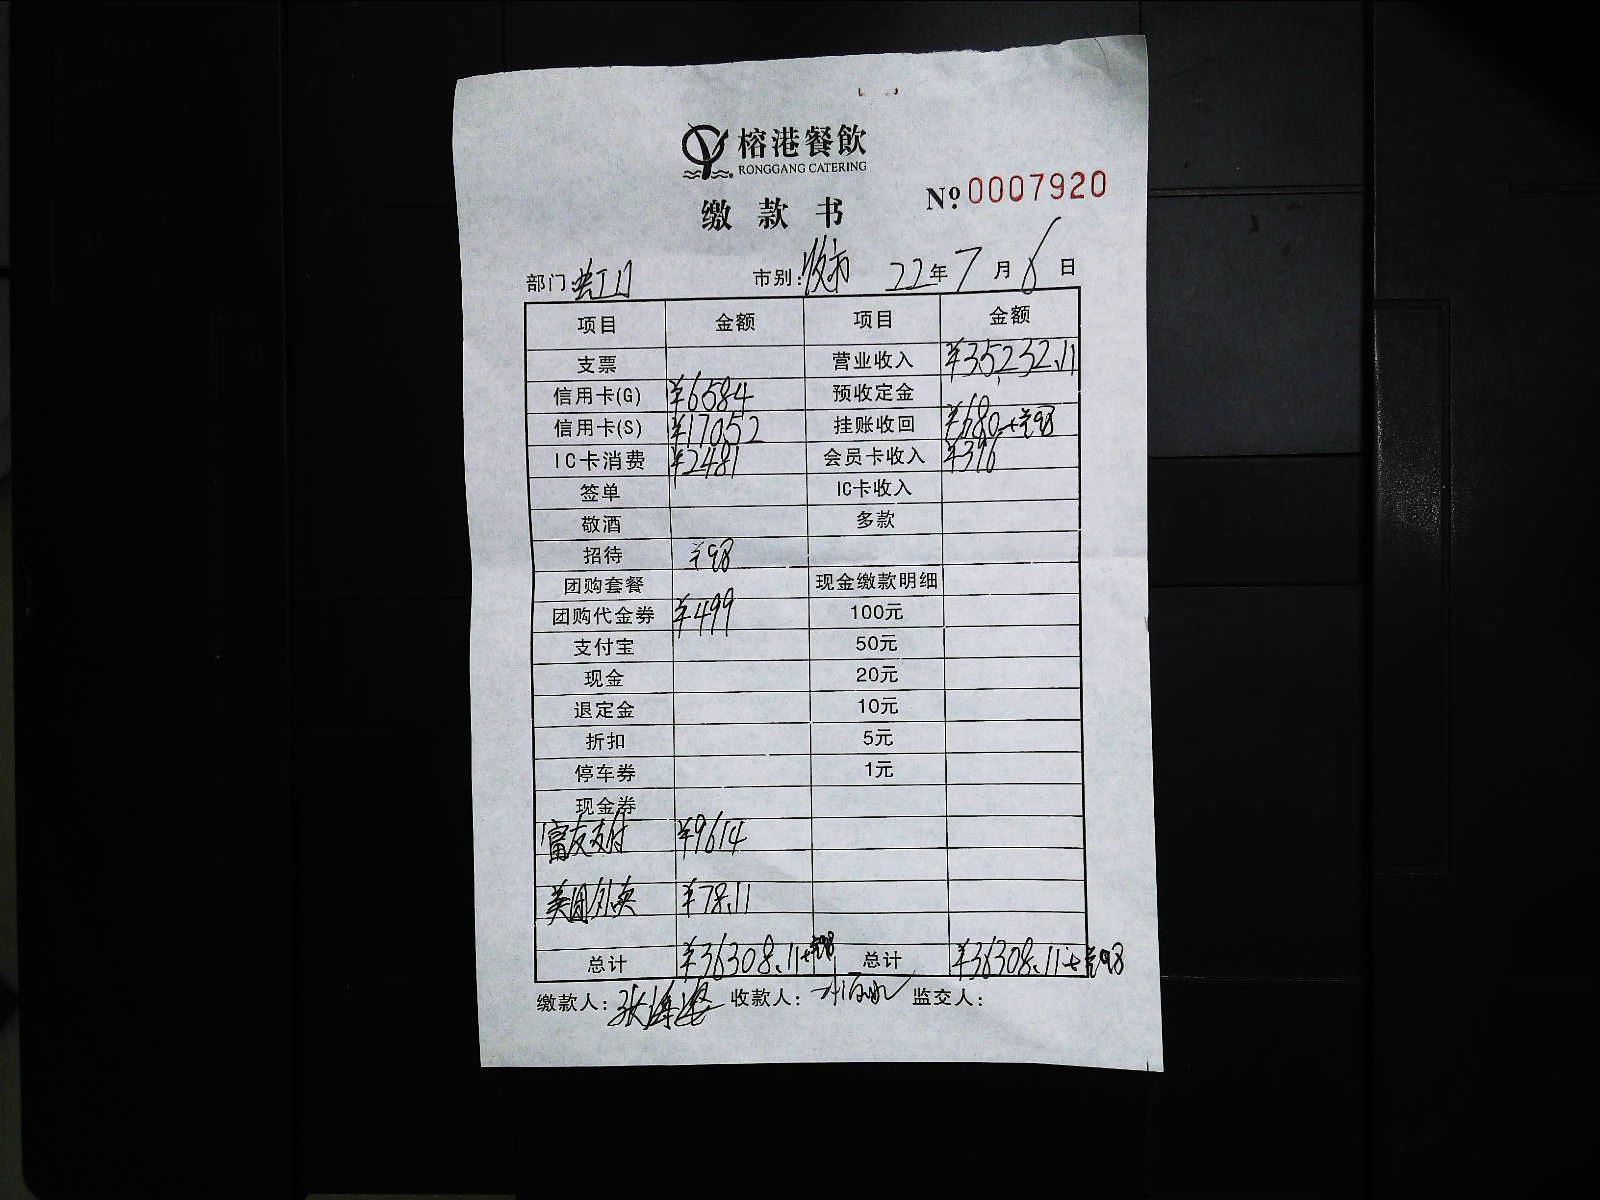 榕港餐飲
RONGGANG CATERING
缴款书 №0007920
部门 虹口 市别: 夜市 22年7月6日
项目 金额 项目 金额
支票 营业收入 ¥35232.11
信用卡(G) ¥6584 预收定金
信用卡(S) ¥17052 挂账收回 ¥680
IC卡消费 ¥2481 会员卡收入 ¥396
签单 IC卡收入
敬酒 多款
招待 98
团购套餐 现金缴款明细
团购代金券 ¥499 100元
支付宝 50元
现金 20元
退定金 10元
折扣 5元
停车券 1元
现金券
富友支付 ¥9614
美团外卖 ¥78.11
总计 ¥36308.11+ 总计 ¥36308.11+
缴款人: 收款人: 监交人: